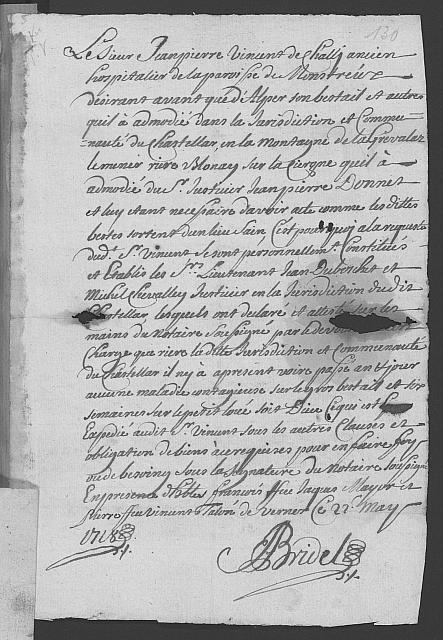 130
Le Sieur Jean pierre Vincent de Chally ancien
hospitalier de la paroisse de Monstreux
desirant avant que d'Alper son bestail et autres
quil à admodié dans la Jurisdiction et Commu-
-nauté du Chastellar, en la Montagne de la
rière Blonay sur la quil à
admodié du Sr. Justicier Jean pierre Donnet
et luy etant necessaire d'avoir acte comme les dittes
bestes sortent d'un lieu sain C'est pourquoy a la requeste
dud. Sr. Vincent se sont personnellemt. Constitués
et Etablis les Srs. Lieutenant Jean Dubochet et
Michel Chevalley Justicier en la Jurisdiction dudit
Chastellar, lesquels ont declaré et attesté sur les
mains du Notaire Soussigné par le de leur
Charge que rière la ditte Jurisdiction et Communauté
du Chastellar il ny à apresent voire passé an et jour
aucune maladie contagieuse sur le gros bestail et six
semaines sur le petit loué soit Dieu Ce qui est
Expedié audit Sr. Vincent sous les autres Clauses et
obligation de biens à ce requises pour en faire foy
ou de besoing sous la Signature du Notaire soussigné
En presence d'hbles françois ffeu Jaques Mayor et
pierre ffeu Vincent Talon de Vernex Ce 22e. May
1718
ABridel